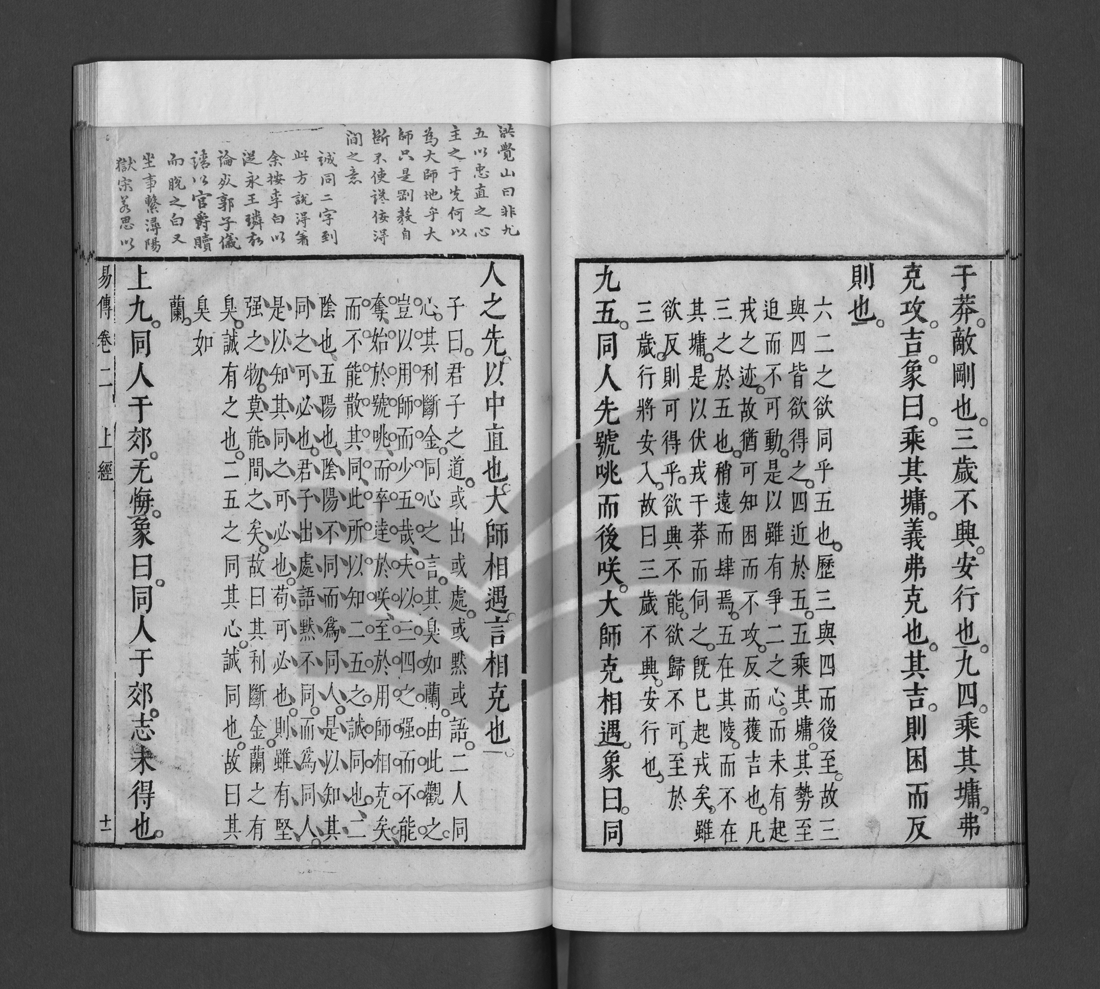 于莽敵剛也三歲不興安行也九四乘其墉弗
克攻吉象曰乘其墉義弗克也其吉則困而反
則也
六二之欲同乎五也歷三與四而後至故三
與四皆欲得之四近於五五乘其墉其勢至
迫而不可動是以雖有爭二之心而未有起
戎之迹故猶可知困而不攻反而獲吉也凡
三之於五也稍遠而肆焉五在其陵而不在
其墉是以伏戎于莽而伺之旣已起戎矣雖
欲反則可得乎欲興不能欲歸不可至於
三歲行將安入故曰三歲不興安行也
九五同人先號咷而後咲大師克相遇象曰同
人之先以中直也大師相遇言相克也
子曰君子之道或出或處或默或語二人同
心其利斷金同心之言其臭如蘭由此觀之
豈以用師而少五哉夫以三四之强而不能
奪始於號咷而卒達於咲至於用師相克矣
而不能散其同此所以知二五之誠同也二
陰也五陽也陰陽不同而爲同人是以知其
同之可必也君子出處語默不同而爲同人
是以知其同之可必也苟可必也則雖有堅
强之物莫能間之矣故曰其利斷金蘭之有
臭誠有之也二五之同其心誠同也故曰其
臭如
蘭
上九同人于郊无悔象曰同人于郊志未得也
易傳卷二 上經 十一
洪覺山曰非九
五以忠直之心
主之于先何以
為大師地乎大
師只是剛毅自
斷不使讒佞得
間之意
誠同二字到
此方說得着
余按李白以
從永王璘起
論死郭子儀
請以官爵贖
而脫之白又
坐事繫潯陽
獄宋若思以